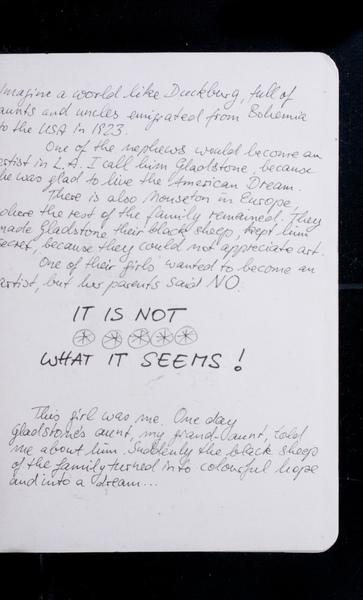 Imagine a world like Duckburg, full of
aunts and uncles emigrated from Bohemia
to the USA in 1923.
One of the nephews would become an
artist in L.A. I call him Gladstone, because
he was glad to live the American Dream.
There is also Mouseton in Europe,
where the rest of the family remained. They
made Gladstone their black sheep, kept him
secret, because they could not appreciate art.
One of their girls wanted to become an
artist, but her parents said NO.
IT IS NOT
WHAT IT SEEMS!
This girl was me. One day
Gladstone's aunt, my grand-aunt, told
me about him. Suddenly the black sheep
of the family turned into colourful hope
and into a dream...